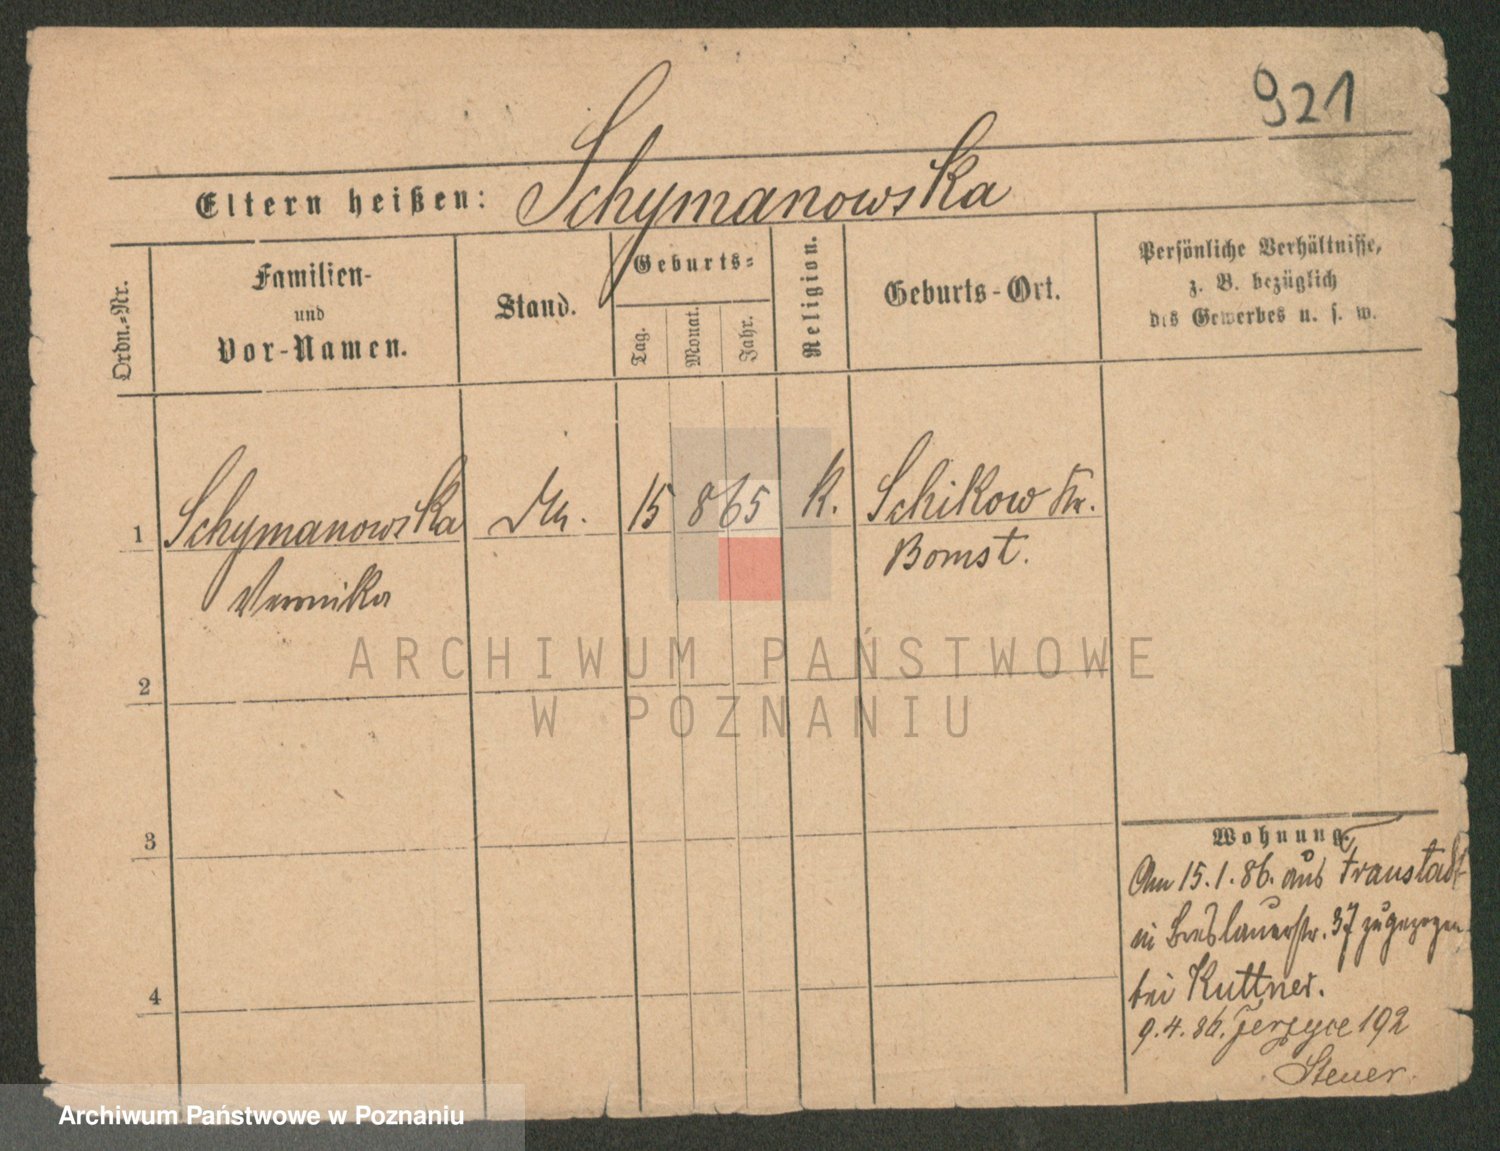 921
Eltern heißen: Schymanowska
Ordn.-Nr.
Familien-
und
Vor-Namen.
Stand.
Geburts-
Tag.
Monat.
Jahr.
Religion.
Geburts-Ort.
Persönliche Verhältnisse,
z. B. bezüglich
des Gewerbes u. s. w.
1 Schymanowska 15 8 65 k. Schikow Kr.
Veronika Bomst.
2
3
4
Wohnung.
Am 15.1.86. aus Fraustadt
in Breslauerstr. 37 zugezogen
bei Kuttner.
9.4.86. Jerzyce 192
Steuer.
ARCHIWUM PAŃSTWOWE
W POZNANIU
Archiwum Państwowe w Poznaniu